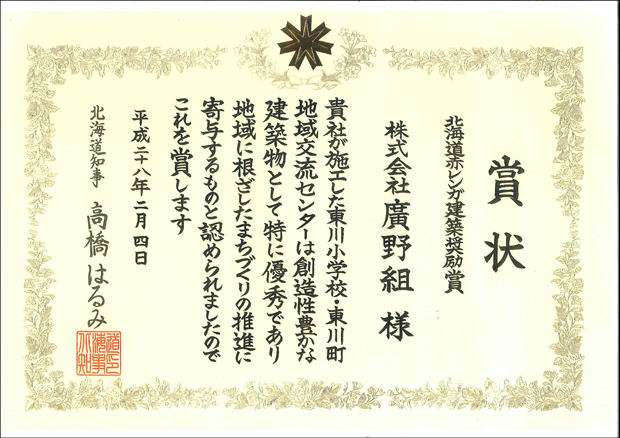 賞状
北海道赤レンガ建築奨励賞
株式会社廣野組様
貴社が施工した東川小学校・東川町
地域交流センターは創造性豊かな
建築物として特に優秀であり
地域に根ざしたまちづくりの推進に
寄与するものと認められましたので
これを賞します
平成二十八年二月四日
北海道知事 高橋はるみ